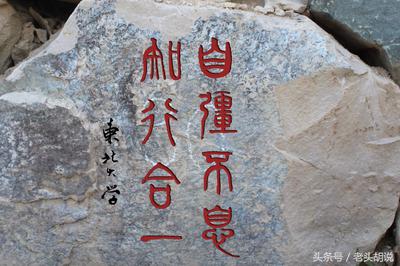 自彊不息
知行合一
東北大学
头条号／老头胡说